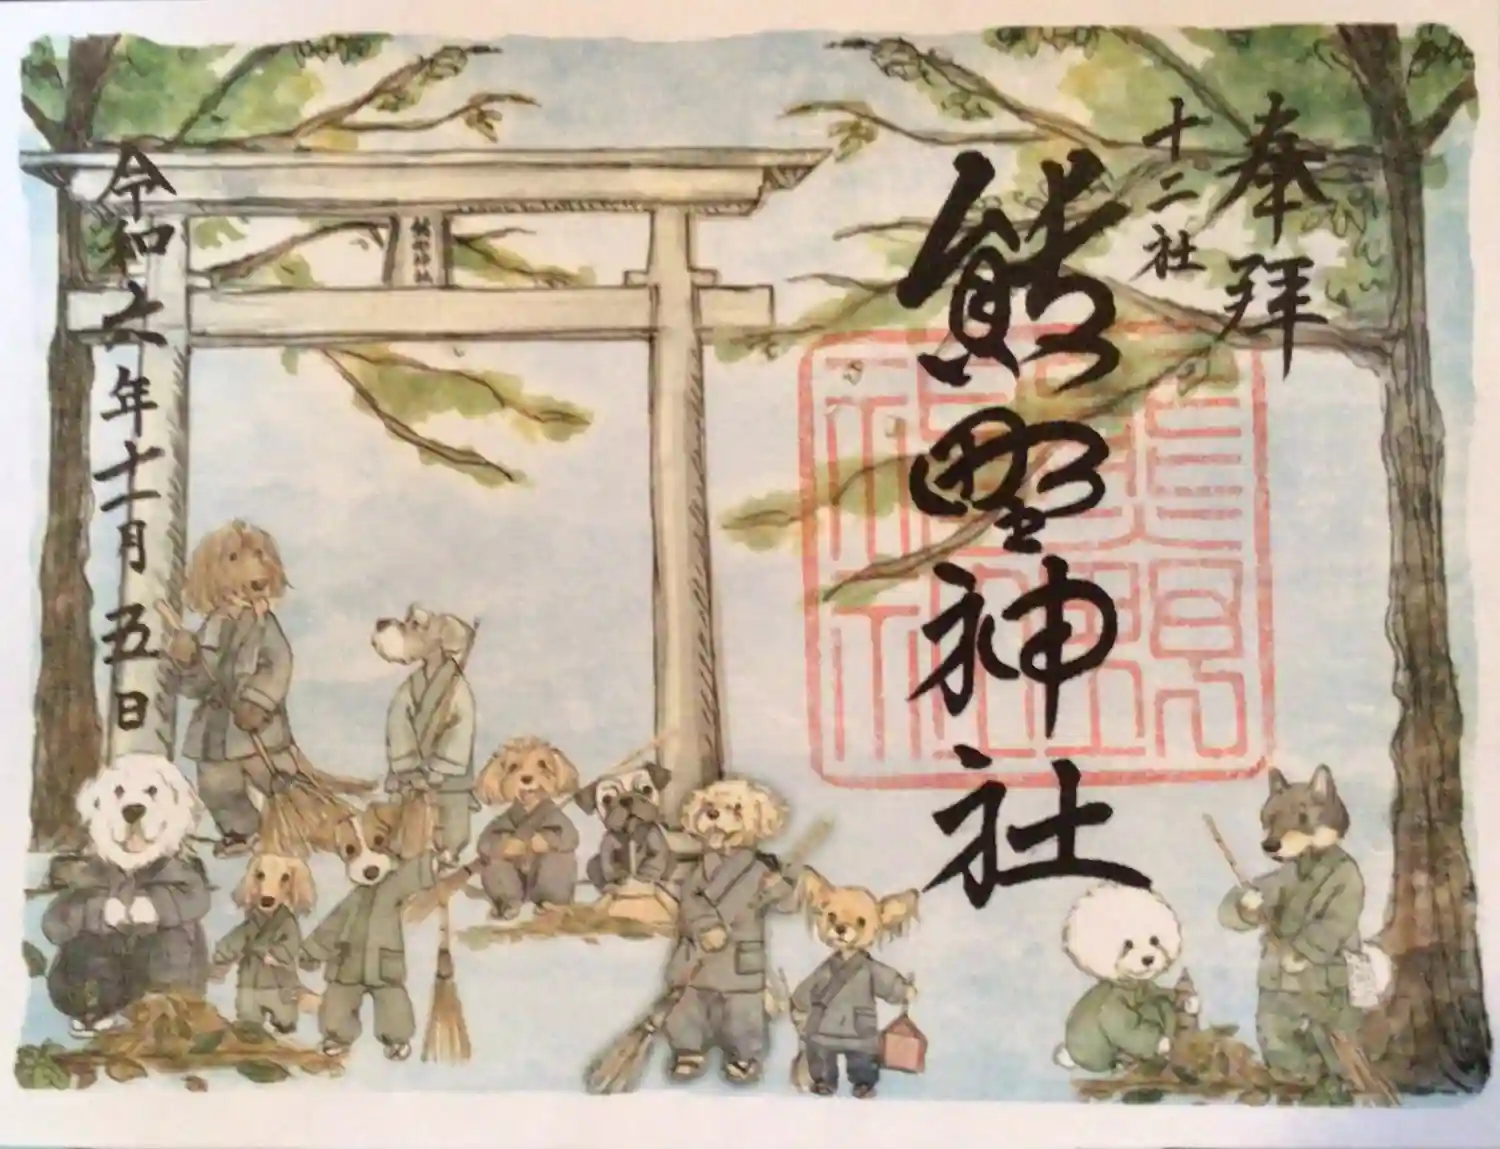 奉拝
十二社
熊野神社
令和元年十一月五日
熊野神社